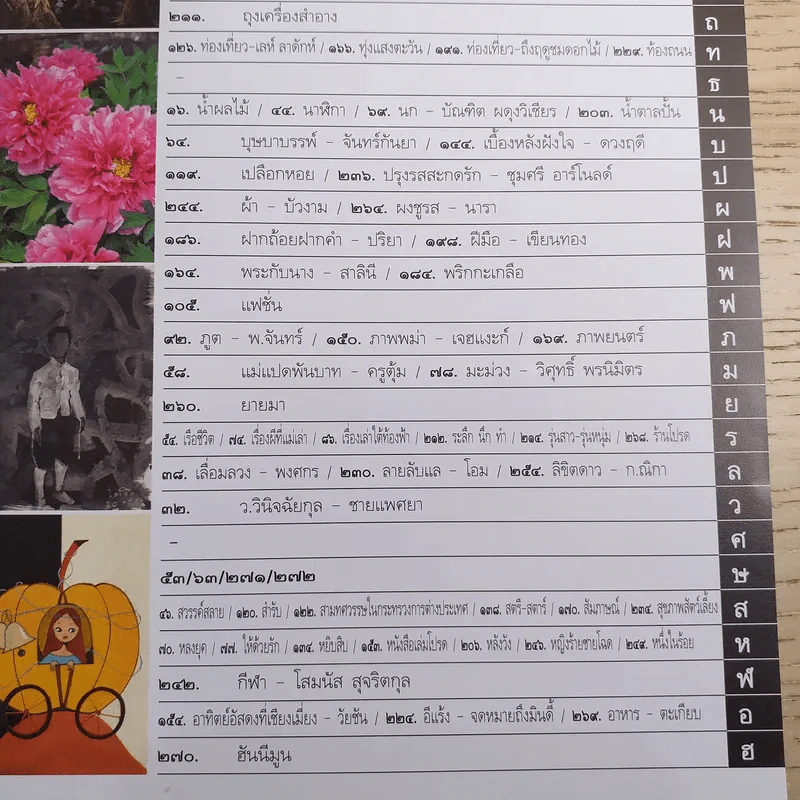 ๒๑๑. ถุงเครื่องสำอาง ถ
๑๒๖. ท่องเที่ยว-เลห์ ลาดักห์ / ๑๖๖. ทุ่งแสงตะวัน / ๑๙๑. ท่องเที่ยว-ถึงฤดูชมดอกไม้ / ๒๒๙. ท้องถนน ท
– ธ
๑๖. น้ำผลไม้ / ๔๔. นาฬิกา / ๖๙. นก - บัณฑิต ผดุงวิเชียร / ๒๐๓. น้ำตาลปั้น น
๖๔. บุษบาบรรพ์ - จันทร์กันยา / ๑๔๔. เบื้องหลังฝังใจ - ดวงฤดี บ
๑๑๙. เปลือกหอย / ๒๓๖. ปรุงรสสะกดรัก - ชุมศรี อาร์โนลด์ ป
๒๔๔. ผ้า - บัวงาม / ๒๖๔. ผงชูรส - นารา ผ
๑๘๖. ฝากถ้อยฝากคำ - ปริยา / ๑๙๘. ฝีมือ - เขียนทอง ฝ
๑๖๔. พระกับนาง - สาลินี / ๑๘๔. พริกกะเกลือ พ
๑๐๕. แฟชั่น ฟ
๙๒. ภูต - พ.จันทร์ / ๑๕๐. ภาพพม่า - เจฮแงะก์ / ๑๖๙. ภาพยนตร์ ภ
๕๘. แม่แปดพันบาท - ครูตุ้ม / ๗๘. มะม่วง - วิศุทธิ์ พรนิมิตร ม
๒๖๐. ยายมา ย
๕๔. เรือชีวิต / ๗๔. เรื่องผีที่แม่เล่า / ๘๖. เรื่องเล่าใต้ท้องฟ้า / ๒๑๒. ระลึก นึก ทำ / ๒๑๔. รุ่นสาว-รุ่นหนุ่ม / ๒๖๘. ร้านโปรด ร
๓๘. เลื่อมลวง - พงศกร / ๒๓๐. ลายลับแล - โอม / ๒๕๔. ลิขิตดาว - ก.ณิกา ล
๓๒. ว.วินิจฉัยกุล - ชายแพศยา ว
– ศ
๕๓/๖๓/๒๗๑/๒๗๒ ษ
๔๖. สวรรค์สลาย / ๑๒๐. สำรับ / ๑๒๒. สามทศวรรษในกระทรวงการต่างประเทศ / ๑๓๘. สตรี-สตาร์ / ๑๗๐. สัมภาษณ์ / ๒๓๔. สุขภาพสัตว์เลี้ยง ส
๗๐. หลงยุค / ๗๗. ให้ด้วยรัก / ๑๓๔. หยิบสิบ / ๑๕๓. หนังสือเล่มโปรด / ๒๐๖. หลังวัง / ๒๔๖. หญิงร้ายชายโฉด / ๒๔๙. หนึ่งในร้อย ห
๒๔๒. กีฬา - โสมนัส สุจริตกุล ฬ
๑๕๔. อาทิตย์อัสดงที่เชียงเมี่ยง - วัยชัน / ๒๒๔. อีแร้ง - จดหมายถึงมินดี้ / ๒๖๙. อาหาร - ตะเกียบ อ
๒๗๐. ฮันนีมูน ฮ